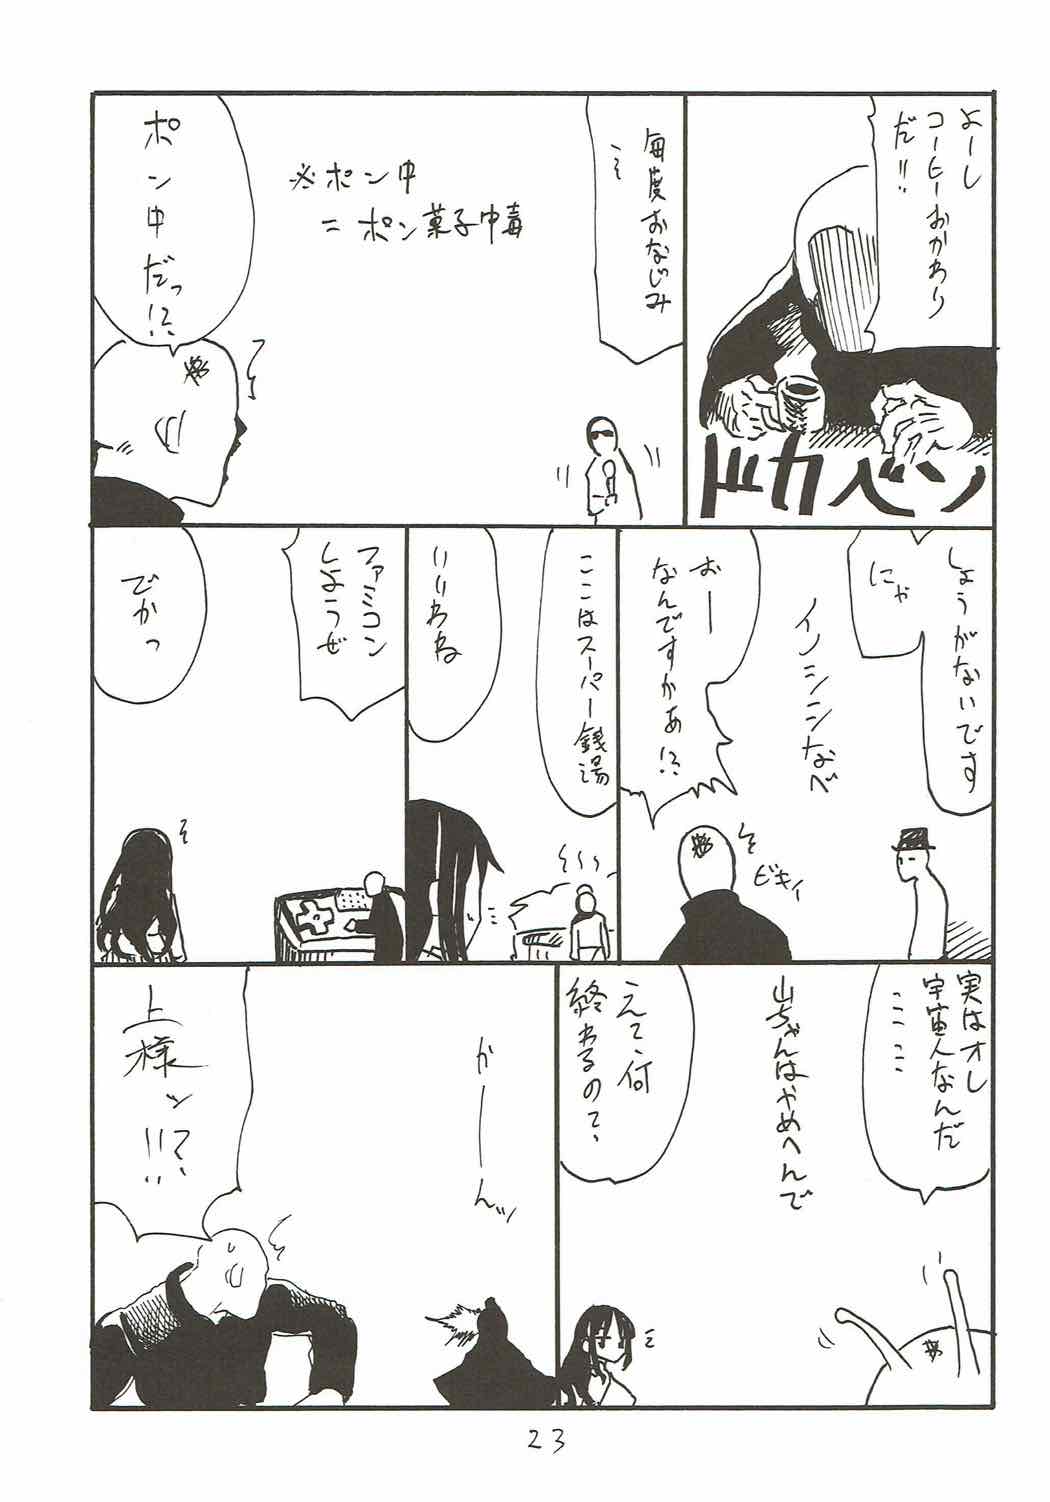 よーし
コーヒーおかわり
だ!!
ドカベン
毎度おなじみ
※ポン中
=ポン菓子中毒
ポン中だっ!?
しょうがないです
にゃ
イノシシなべ
おー
なんですかあ!?
ビキィ
ここはスーパー銭湯
いいわね
ファミコン
しようぜ
でかっ
実はオレ
宇宙人なんだ
山ちゃんはやめへんで
えっ、何
終わるの?、
がーーんッ
上様ッ!!?
23